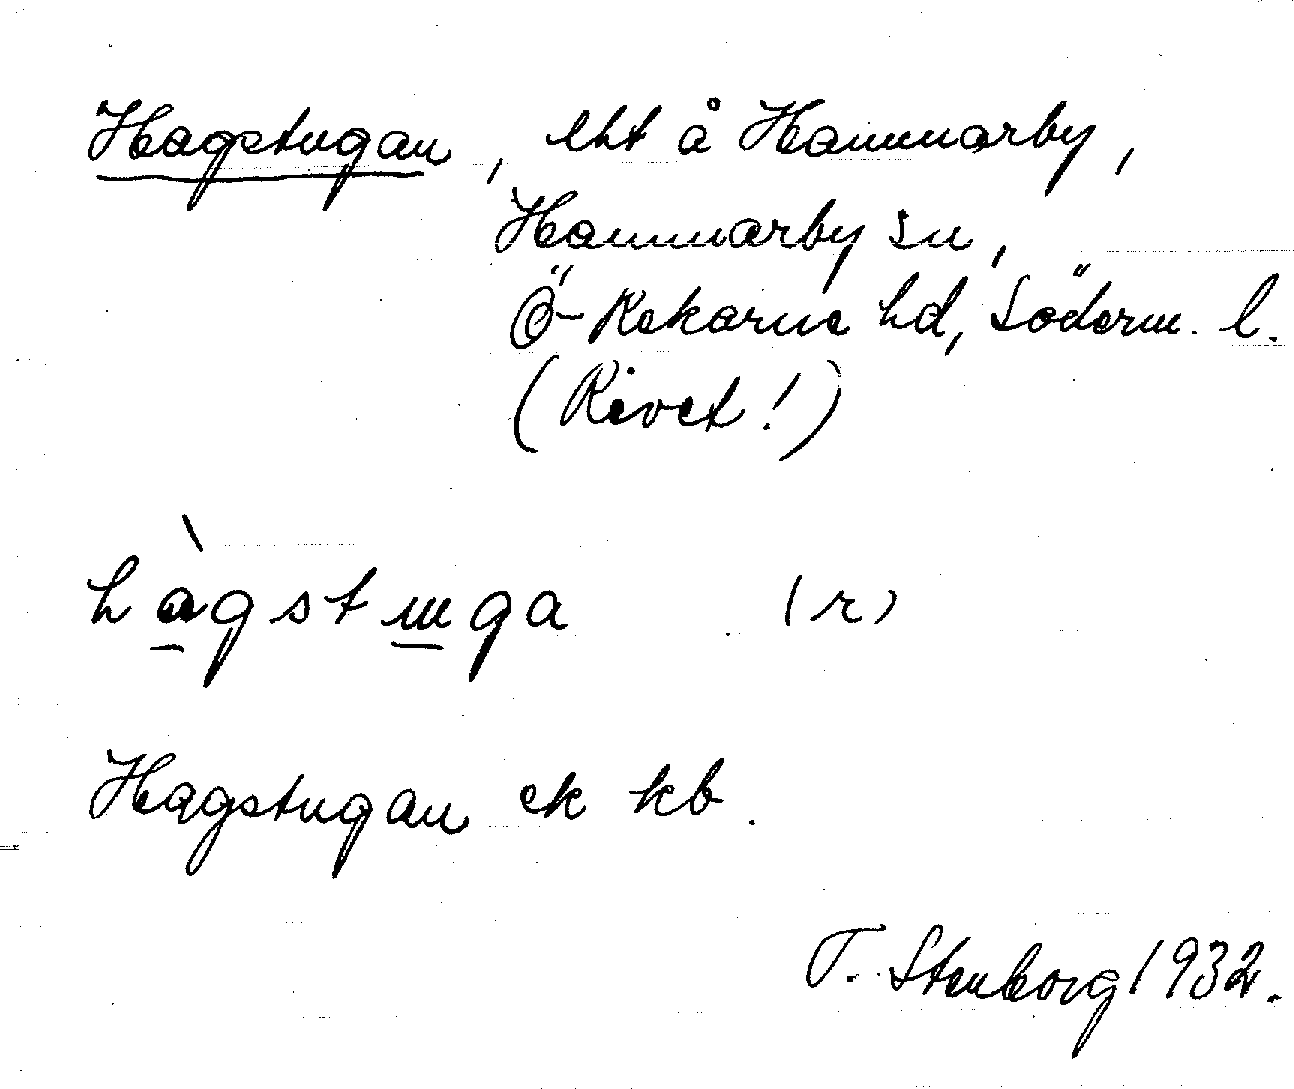 Hagstugan, lht å Hammarby,
Hammarby sn,
Ö-Rekarne hd, Söderm. l.
(Rivet!)
hàgstɯga (r)
Hagstugan ek kb.
T. Stenborg 1932.